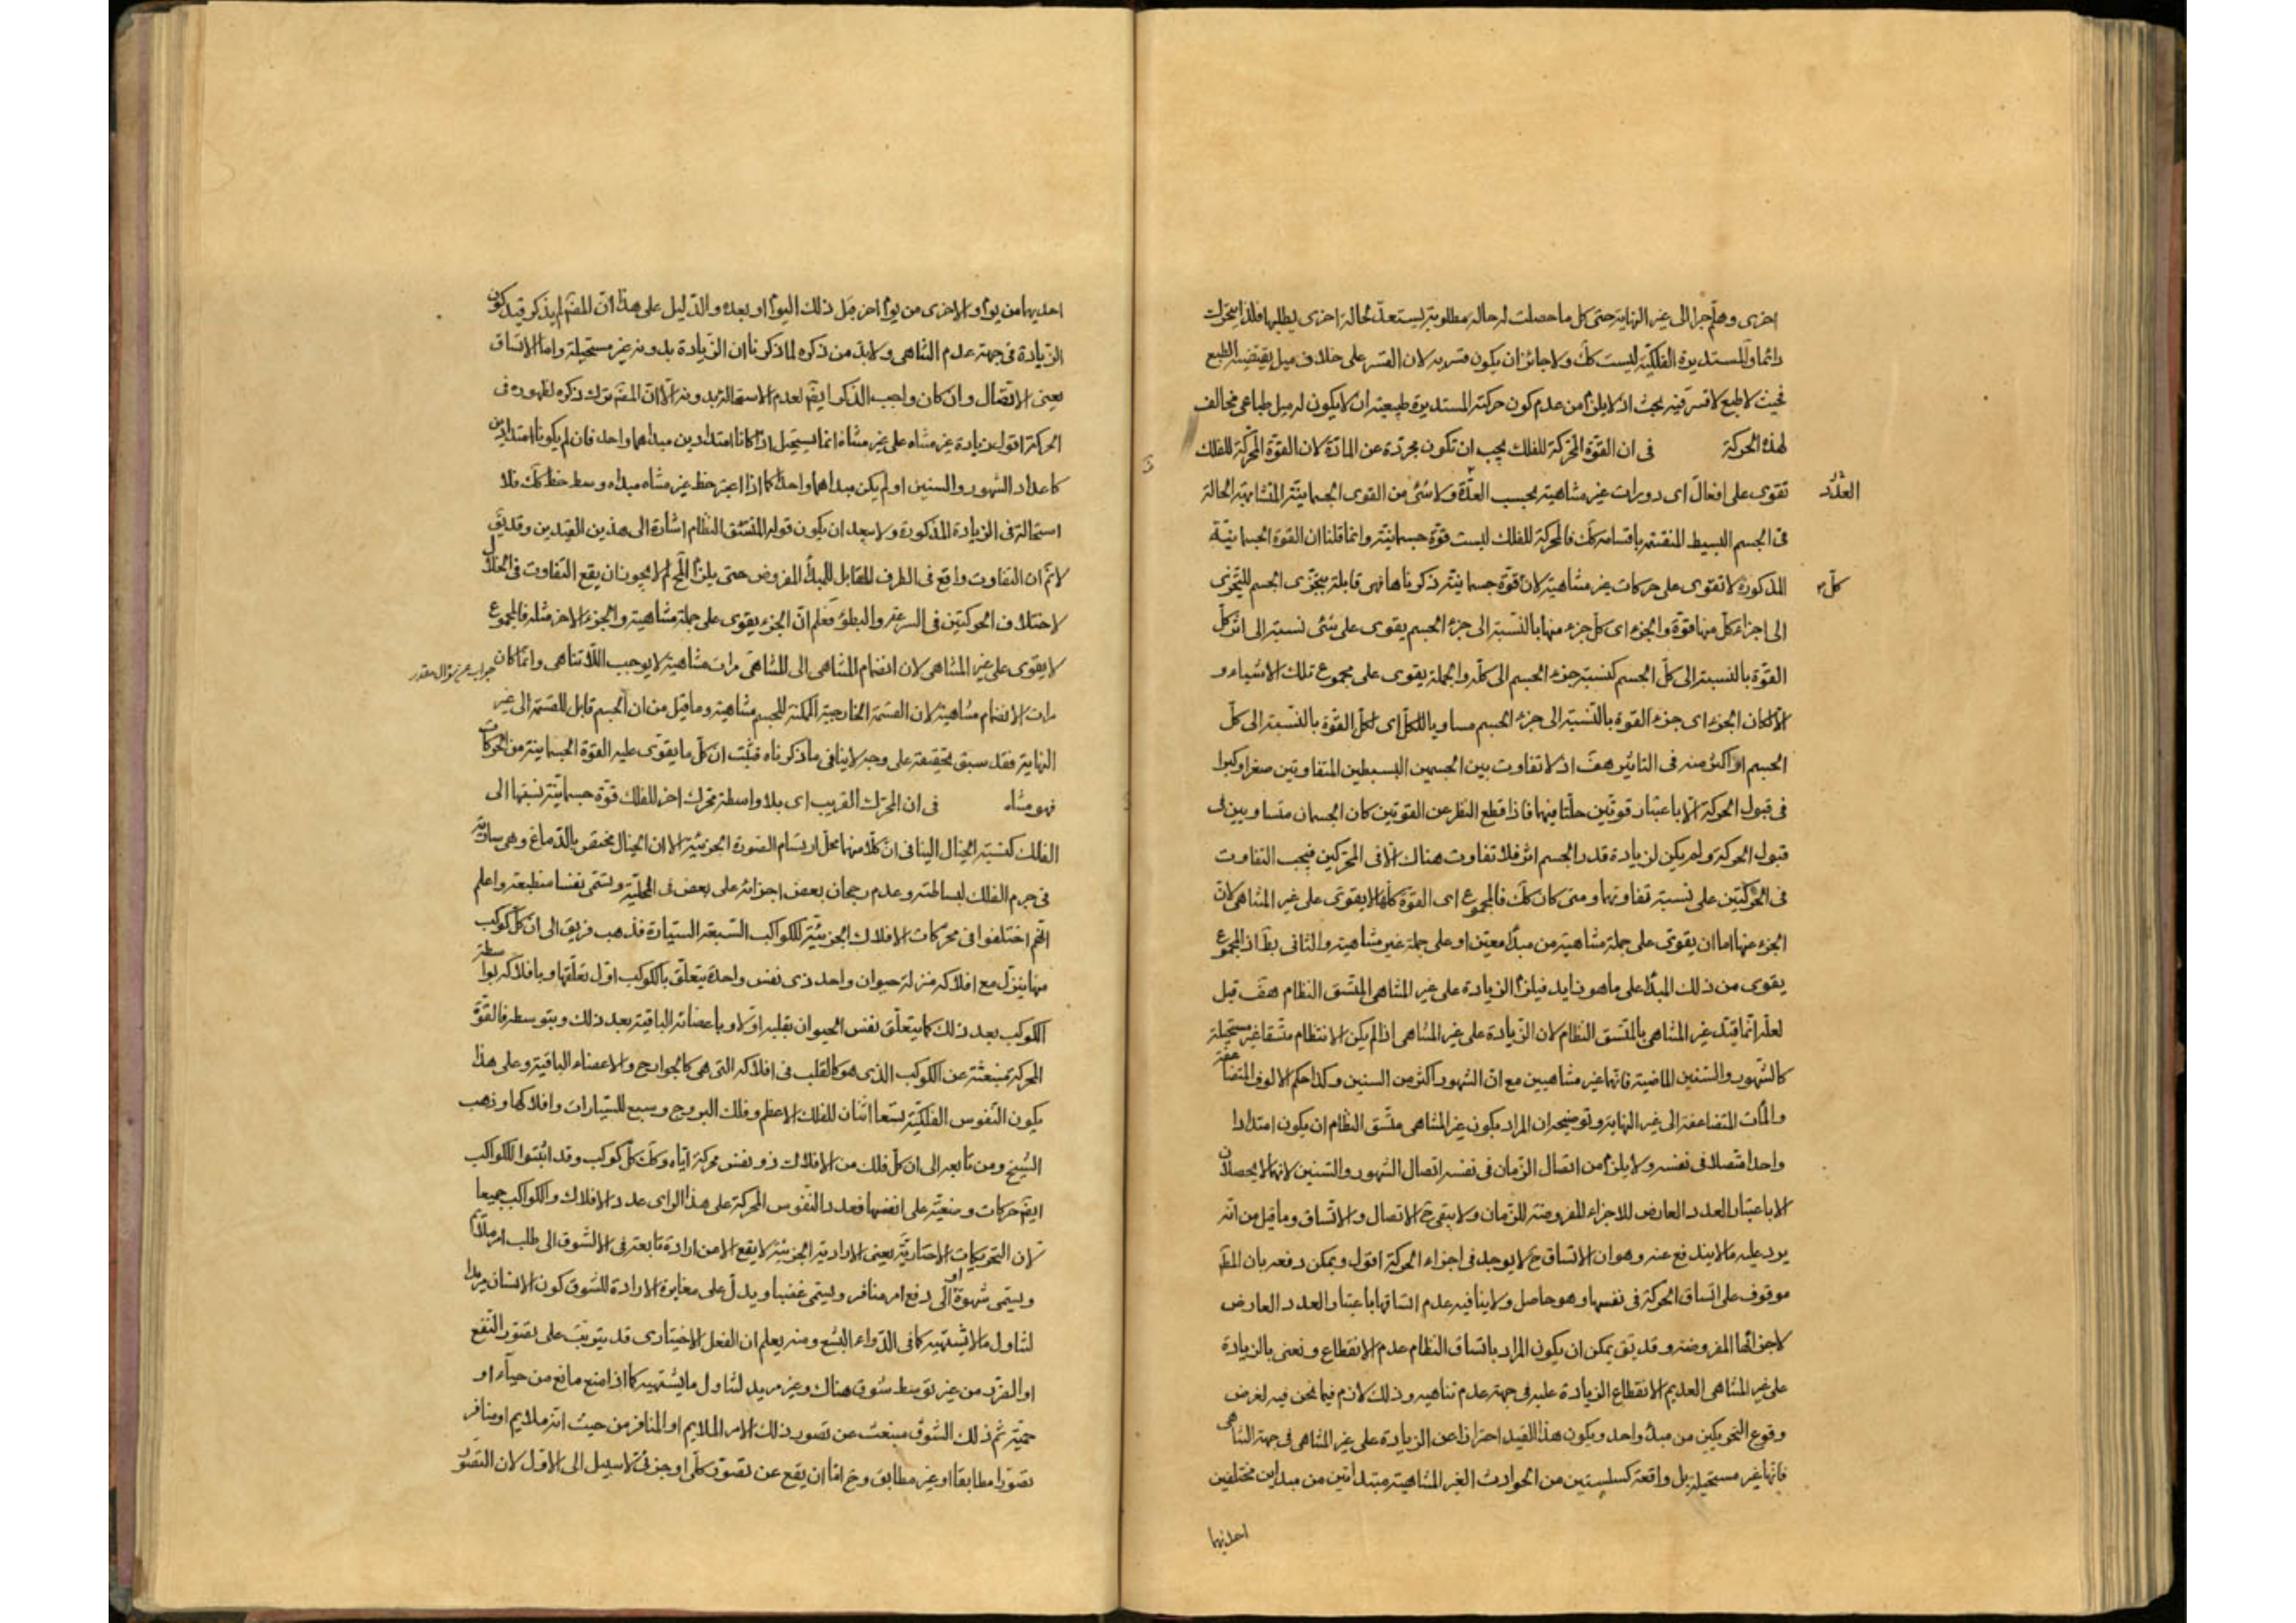 اخرى وهلم جرا الى غير النهاية حتى كل ما حصلت له حالة مطلوبة يستعد لحالة اخرى يطلبها فلذا يتحرك
دائما والمستديرة الفلكية ليست كك ولا جائز ان يكون قسرية لان القسر على خلاف ميل يقتضيه الطبع
فحيث لا طبع لا قسر فيه بحث اذ لا يلزم من عدم كون حركته المستديرة طبيعية ان لا يكون له ميل طباعى مخالف
لهذه الحركة فى ان القوة المحركة للفلك يجب ان تكون مجردة عن المادة لان القوة المحركة للفلك
تقوى على افعال اى دورات غير متناهية بحسب العدة ولا شئ من القوى الجسمانية المتشابهة الحالة
فى الجسم البسيط المنقسمة بانقسامه كك فالمحركة للفلك ليست قوة جسمانية وانما قلنا ان القوة الجسمانية
كل
المذكورة لا تقوى على حركات غير متناهية لان قوة جسمانية ذكرناها فهى قابلة بتجزى الجسم للتجزى
الى اجزاء كل منها قوة والجزء اى كل جزء منها بالنسبة الى جزء الجسم يقوى على شئ نسبته الى اثر كل
القوة بالنسبة الى كل الجسم كنسبة جزء الجسم الى كله والجملة يقوى على مجموع تلك الاشياء و
الا لكان الجزء اى جزء القوة بالنسبة الى جزء الجسم مساويا للكل اى لكل القوة بالنسبة الى كل
الجسم او اكثر منه فى التاثير هف اذ لا تفاوت بين الجسمين البسيطين المتفاوتين صغرا وكبرا
فى قبول الحركة الا باعتبار قوتين حلتا فيهما فاذا قطع النظر عن القوتين كان الجسمان متساويين فى
قبول الحركة ولم يكن لزيادة قدر الجسم اثر فلا تفاوت هناك الا فى المحركين فيجب التفاوت
فى الحركتين على نسبة تفاوتهما ومتى كان كك فالمجموع اى القوة كلها لا يقوى على غير المتناهى لان
الجزء منها اما ان يقوى على جملة متناهية من مبدا معين او على جملة غير متناهية والثانى بط اذ المجموع
يقوى من ذلك المبدا على ما هو زايد فيلزم الزيادة على غير المتناهى المتسق النظام هف قيل
لعله انما قيد غير المتناهى بالمتسق النظام لان الزيادة على غير المتناهى اذا لم يكن الانتظام متسقا غير مستحيلة
كالشهور والسنين الماضية فانها غير متناهيين مع ان الشهور اكثر من السنين وكذا حكم الالوف المتضاعفة
والمآت المتضاعفة الى غير النهاية وتوضيحه ان المراد بكون غير المتناهى متسق النظام ان يكون امتدادا
واحدا متصلا فى نفسه ولا يلزم من اتصال الزمان فى نفسه اتصال الشهور والسنين لانهما لا يحصلان
الا باعتبار العدد العارض للاجزاء المفروضة للزمان ولا يبقى ح الاتصال والاتساق وما قيل من انه
يرد عليه ما لا يندفع عنه وهو ان الاتساق ح لا يوجد فى اجزاء الحركة اقول ويمكن دفعه بان المط
موقوف على اتساق الحركة فى نفسها وهو حاصل ولا ينافيه عدم اتساقها باعتبار العدد العارض
لاجزائها المفروضة وقد يق يمكن ان يكون المراد باتساق النظام عدم الانقطاع ونعنى بالزيادة
على غير المتناهى العديم الانقطاع الزيادة عليه فى جهة عدم تناهيه وذلك لازم فيما نحن فيه لفرض
وقوع التحريكين من مبدا واحد ويكون هذا القيد احترازا عن الزيادة على غير المتناهى فى جهة التناهى
فانها غير مستحيلة بل واقعة كسلسلتين من الحوادث الغير المتناهية مبتدأتين من مبداين مختلفين
احديهما
احديهما من يوم والاخرى من يوم اخر قبل ذلك اليوم او بعده والدليل على هذا ان المصنف لم يذكر قيد كون
الزيادة فى جهة عدم التناهى ولا بد من ذكره لما ذكرنا ان الزيادة بدونه غير مستحيلة واما الاتساق
بمعنى الاتصال وان كان واجب الذكر ايضا لعدم الاستحالة بدونه الا ان المصنف ترك ذكره لظهوره فى
الحركة اقول زيادة غير متناه على غير متناه انما يستحيل اذا كانا امتدادين مبداهما واحد فان لم يكونا امتدادين
كاعداد الشهور والسنين او لم يكن مبداهما واحدا كما اذا اعتبر خط غير متناه مبداه وسط خط كك فلا
استحالة فى الزيادة المذكورة ولا يبعد ان يكون قوله المتسق النظام اشارة الى هذين القيدين وقد يق
لا ثم ان التفاوت واقع فى الطرف المقابل للمبدأ المفروض حتى يلزم المح لم لا يجوز ان يقع التفاوت فى الخلال
لاختلاف الحركتين فى السرعة والبطؤ فعلم ان الجزء يقوى على جملة متناهية والجزء الاخر مثله فالمجموع
لا يقوى على غير المتناهى لان انضمام المتناهى الى المتناهى مرات متناهية لا يوجب اللاتناهى وانما كان
جواب عن سؤال مقدر
مرات الانضمام متناهية لان القسمة الخارجية الممكنة للجسم متناهية وما قيل من ان الجسم قابل للقسمة الى غير
النهاية فقد سبق تحقيقه على وجه لا ينافى ما ذكرناه فثبت ان كل ما يقوى عليه القوة الجسمانية من الحركات
فهو متناه فى ان المحرك القريب اى بلا واسطة محرك اخر للفلك قوة جسمانية نسبتها الى
الفلك كنسبة الخيال الينا فى ان كلا منهما محل ارتسام الصورة الجزئية الا ان الخيال مختص بالدماغ وهى سارية
فى جرم الفلك لبساطته وعدم رجحان بعض اجزائه على بعض فى المحلية وتسمى نفسا منطبعة واعلم
انهم اختلفوا فى محركات الافلاك الجزئية للكواكب السبعة السيارة فذهب فريق الى ان كل كوكب
منها ينزل مع افلاكه منزلة حيوان واحد ذى نفس واحدة يتعلق بالكوكب اول تعلقها وبافلاكه بواسطة
الكوكب بعد ذلك كما يتعلق نفس الحيوان بقلبه اولا وباعضائه الباقية بعد ذلك وبتوسطه فالقوة
المحركة منبعثة عن الكوكب الذى هو كالقلب فى افلاكه التى هى كالجوارح والاعضاء الباقية وعلى هذا
يكون النفوس الفلكية تسعا اثنان للفلك الاعظم وفلك البروج وسبع للسيارات وافلاكها وذهب
الشيخ ومن تابعه الى ان كل فلك من الافلاك ذو نفس محركة اياه وكك كل كوكب وقد اثبتوا للكواكب
ايضا حركات وضعية على انفسها فعدد النفوس المحركة على هذا الراى عدد الافلاك والكواكب جميعا
لان التحريكات الاختيارية يعنى الارادية الجزئية لا يقع الا من ارادة تابعة فى الشوق الى طلب امر ملايم
ويسمى شهوة او الى دفع امر منافر ويسمى غضبا ويدل على مغايرة الارادة للشوق كون الانسان مريدا
لتناول ما لا يشتهيه كما فى الدواء البشع ومنه يعلم ان الفعل الاختيارى قد يترتب على تصور النفع
او الضر من غير توسط شوق هناك وغير مريد لتناول ما يشتهيه كما اذا منع مانع من حياء او
حمية ثم ذلك الشوق منبعث عن تصور ذلك الامر الملايم او المنافر من حيث انه ملايم او منافر
تصورا مطابقا او غير مطابق وح اما ان يقع عن تصور كلى او جزئى لا سبيل الى الاول لان التصور